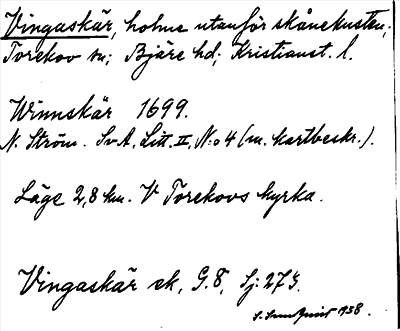 Vingaskär, holme utanför skånekusten;
Torekov sn; Bjäre hd; Kristianst. l.
Winnskär 1699.
N. Ström. SvA, Litt. II, N:o 4 (m. kartbeskr.).
Läge 2,8 km. V Torekovs kyrka.
Vingaskär ek, G.8, Sj:273.
S. Sundqvist 1938.